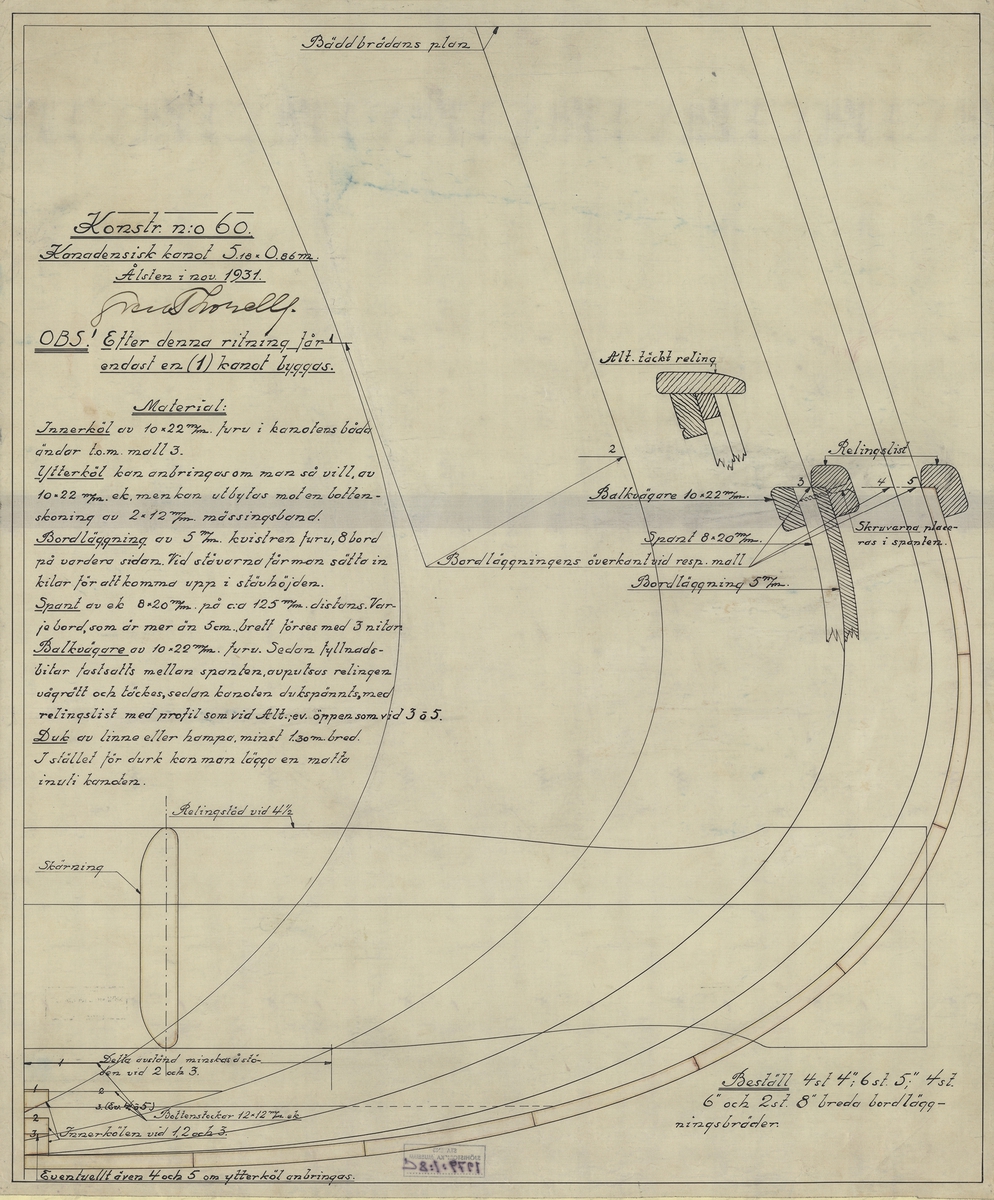 Bäddbrädans plan
Konstr. n:o 60.
Kanadensisk kanot 5.18 × 0.86 m.
Ålsten i nov. 1931.
OBS! Efter denna ritning får
endast en (1) kanot byggas.
1
Material:
Innerköl av 10×22 m/m. furu i kanotens båda
ändar t.o.m. mall 3.
Ytterköl kan anbringas om man så vill, av
10×22 m/m. ek, men kan utbytas mot en botten-
skoning av 2×12 m/m. mässingsband.
Bordläggning av 5 m/m. kvistren furu, 8 bord
på vardera sidan. Vid stävarna får man sätta in
kilar för att komma upp i stävhöjden.
Spant av ek 8×20 m/m. på c:a 125 m/m. distans. Var-
je bord, som är mer än 5 cm. brett förses med 3 nitar.
Balkvägare av 10×22 m/m. furu. Sedan fyllnads-
bitar fastsatts mellan spanten, avputsas relingen
vågrätt och täckes, sedan kanoten dukspännts, med
relingslist med profil som vid Alt.; ev. öppen som vid 3 ö 5.
Duk av linne eller hampa, minst 1.30 m. bred.
I stället för durk kan man lägga en matta
inuti kanoten.
Alt. täckt reling
2
Relingslist
3
4
5
Balkvägare 10×22 m/m.
Skruvarna place-
ras i spanten.
Spant 8×20 m/m.
Bordläggningens överkant vid resp. mall
Bordläggning 5 m/m.
Relingstöd vid 4½
Skärning
1
Detta avstånd minskas å stö-
den vid 2 och 3.
1
2
2
3 (Ev. 4 å 5)
Bottenstockar 12×12 m/m. ek
3
Innerkölen vid 1, 2 och 3.
Eventuellt även 4 och 5 om ytterköl anbringas.
Beställ 4st 4"; 6st. 5"; 4st.
6" och 2st. 8" breda bordlägg-
ningsbräder.